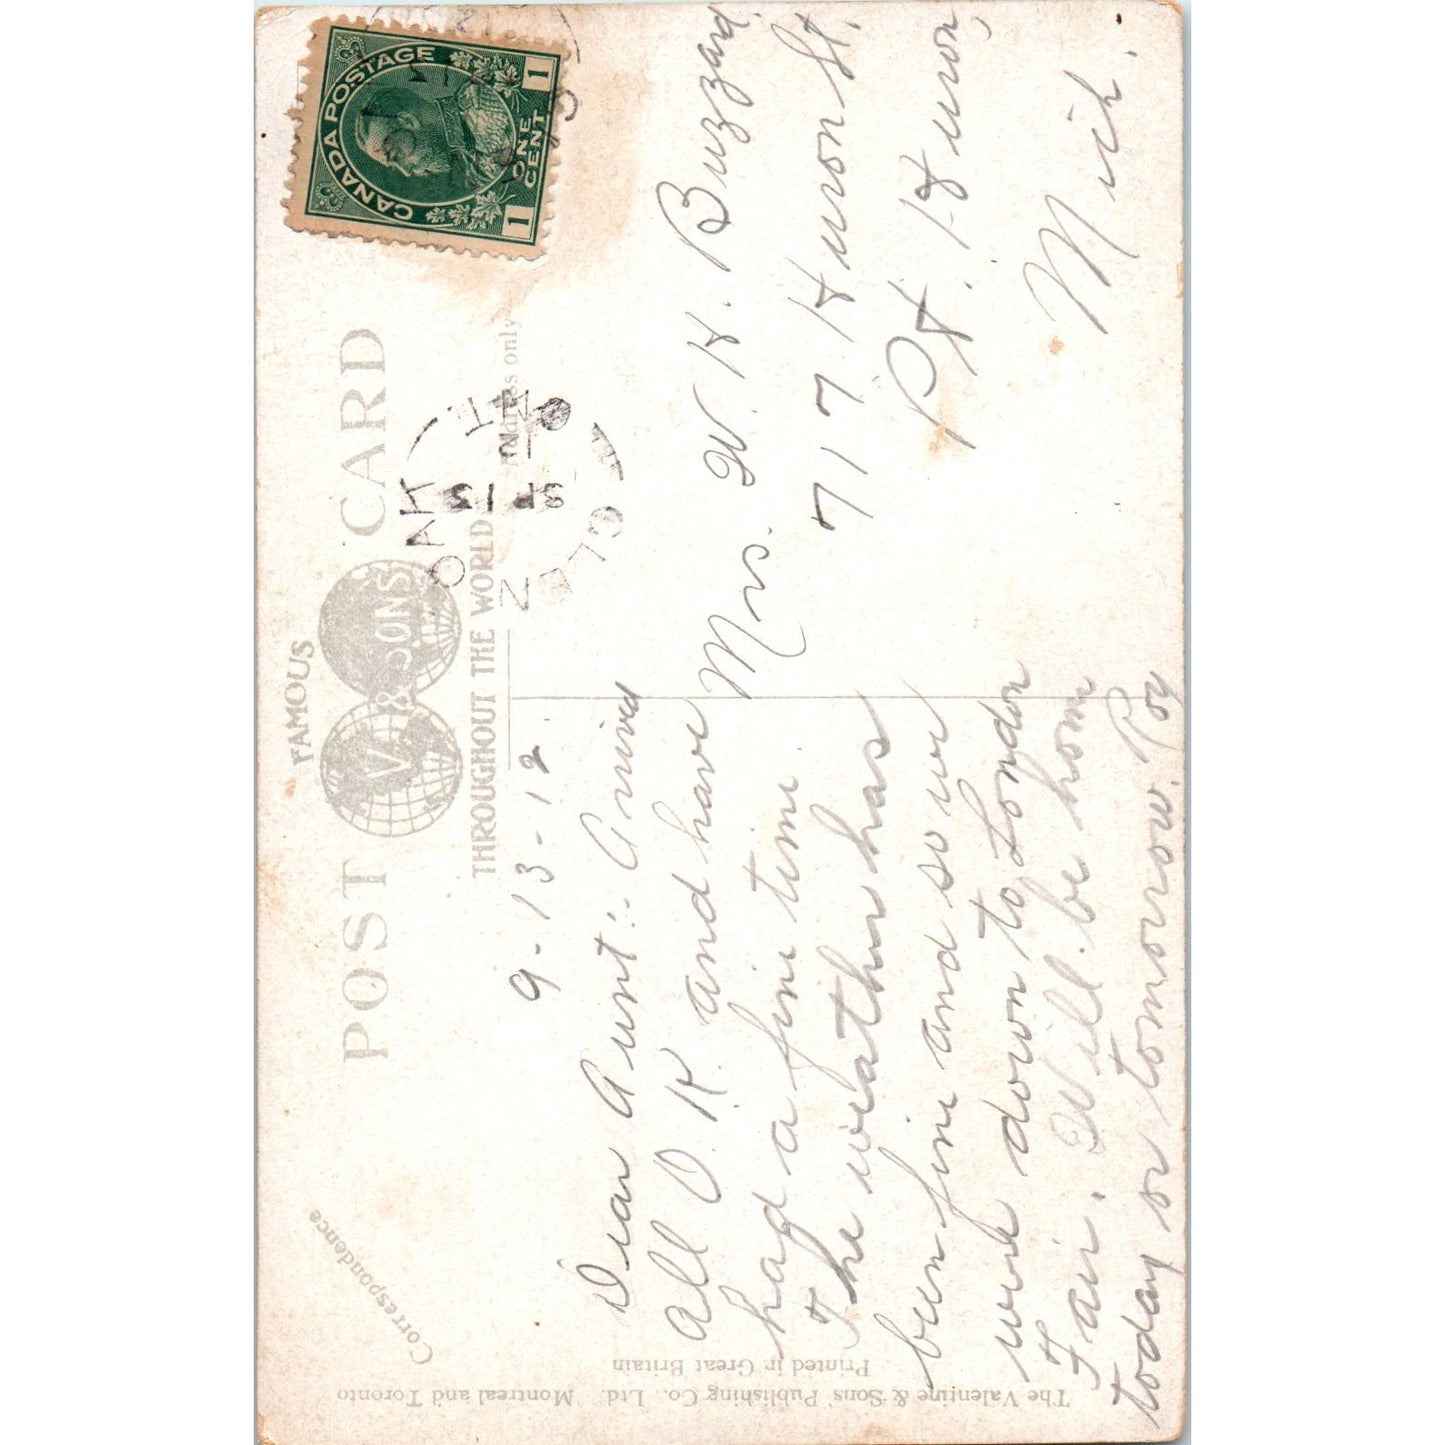 FAMOUS
POST CARD
V. & SONS
THROUGHOUT THE WORLD
Correspondence
Address only
CANADA POSTAGE
1 ONE CENT 1
GLENOAK
SP 13
12
ONT
9-13-12
Dear Aunt:- Arrived
all O.K. and have
had a fine time
The weather has
been fine and so we
were down to London
Fair. Will be home
today or tomorrow. Roy
Mrs. W. H. Buzzard
717 Huron St.
Pt. Huron
Mich.
The Valentine & Sons' Publishing Co., Ltd. Montreal and Toronto
Printed in Great Britain